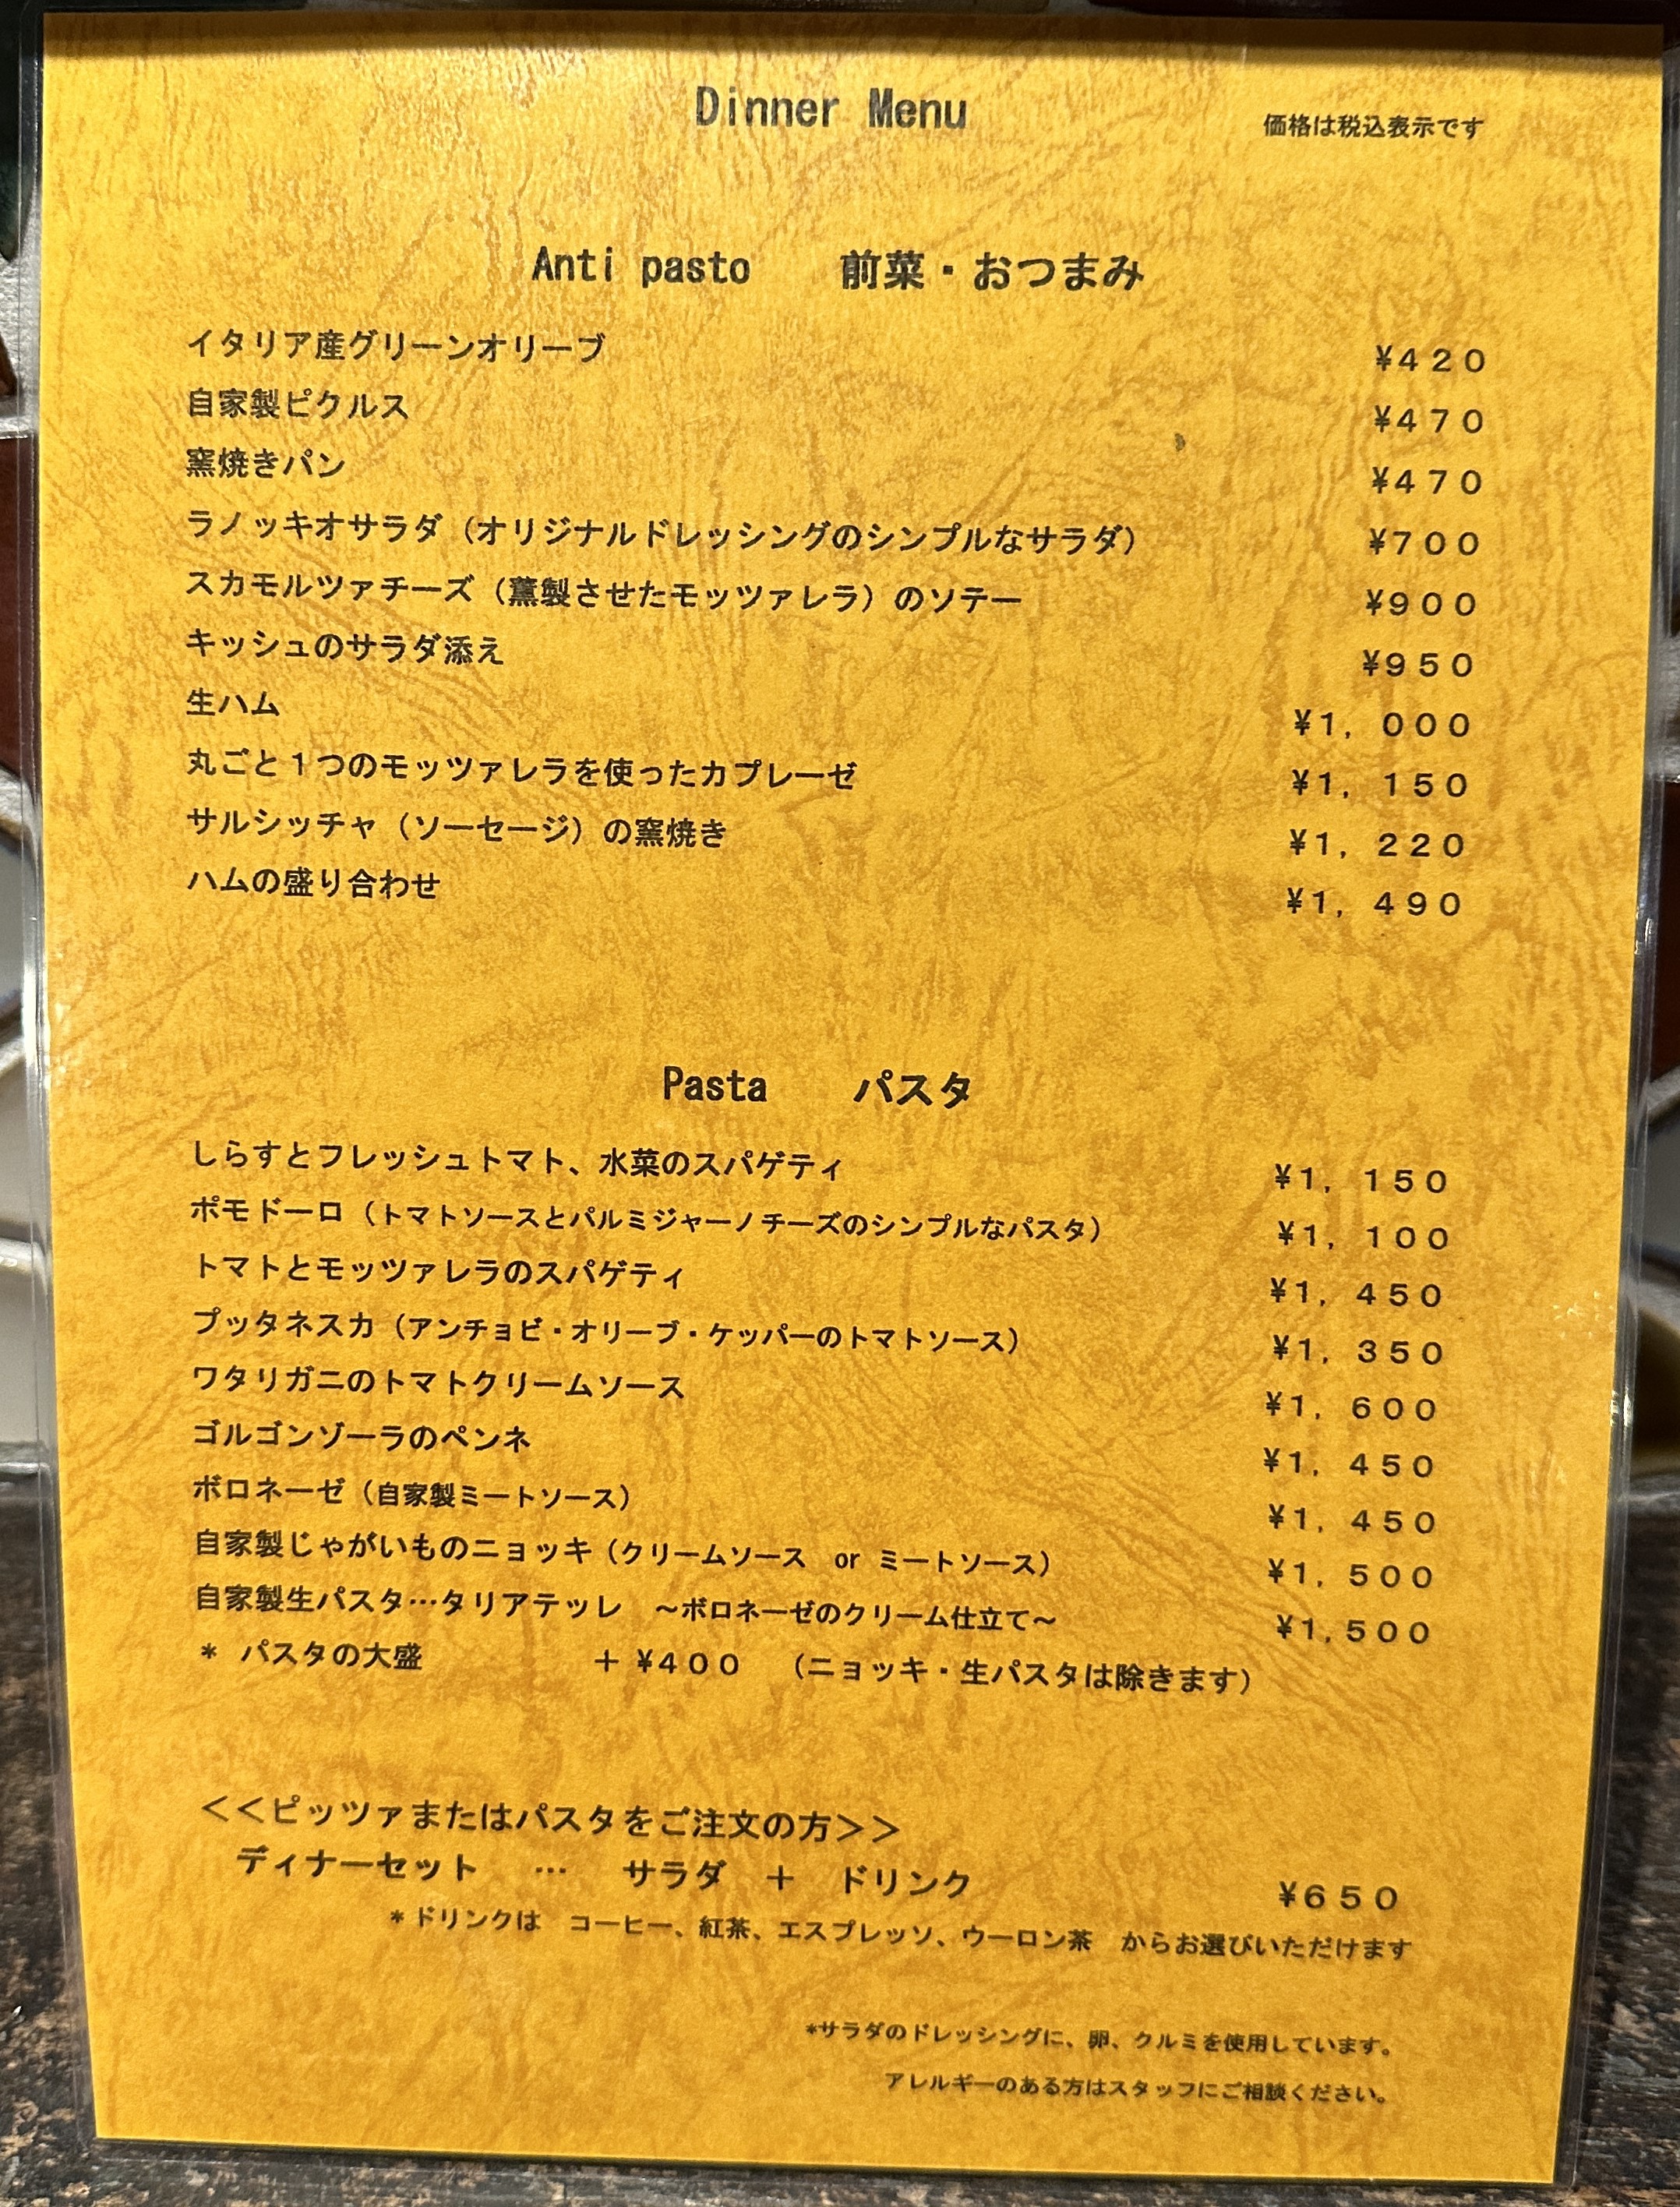 Dinner Menu
価格は税込表示です
Anti pasto　前菜・おつまみ
イタリア産グリーンオリーブ　¥420
自家製ピクルス　¥470
窯焼きパン　¥470
ラノッキオサラダ（オリジナルドレッシングのシンプルなサラダ）　¥700
スカモルツァチーズ（薫製させたモッツァレラ）のソテー　¥900
キッシュのサラダ添え　¥950
生ハム　¥1，000
丸ごと１つのモッツァレラを使ったカプレーゼ　¥1，150
サルシッチャ（ソーセージ）の窯焼き　¥1，220
ハムの盛り合わせ　¥1，490
Pasta　パスタ
しらすとフレッシュトマト、水菜のスパゲティ　¥1，150
ポモドーロ（トマトソースとパルミジャーノチーズのシンプルなパスタ）　¥1，100
トマトとモッツァレラのスパゲティ　¥1，450
プッタネスカ（アンチョビ・オリーブ・ケッパーのトマトソース）　¥1，350
ワタリガニのトマトクリームソース　¥1，600
ゴルゴンゾーラのペンネ　¥1，450
ボロネーゼ（自家製ミートソース）　¥1，450
自家製じゃがいものニョッキ（クリームソース　or ミートソース）　¥1，500
自家製生パスタ…タリアテッレ　～ボロネーゼのクリーム仕立て～　¥1,500
＊ パスタの大盛　＋¥400　（ニョッキ・生パスタは除きます）
＜＜ピッツァまたはパスタをご注文の方＞＞
ディナーセット　…　サラダ　＋　ドリンク　¥650
＊ドリンクは　コーヒー、紅茶、エスプレッソ、ウーロン茶　からお選びいただけます
*サラダのドレッシングに、卵、クルミを使用しています。
アレルギーのある方はスタッフにご相談ください。